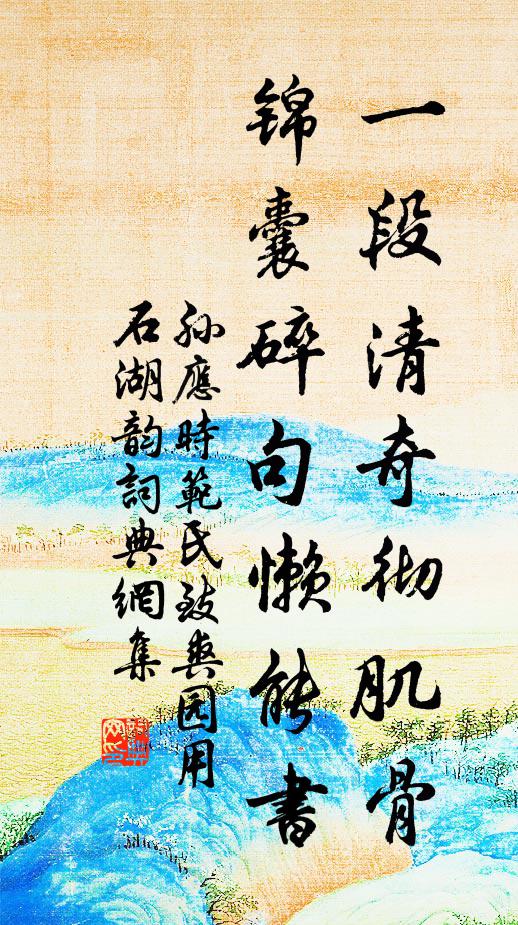 一段清奇彻肌骨
锦囊碎句懒能书
孙應時範氏致爽园用
石湖韵詞典網集